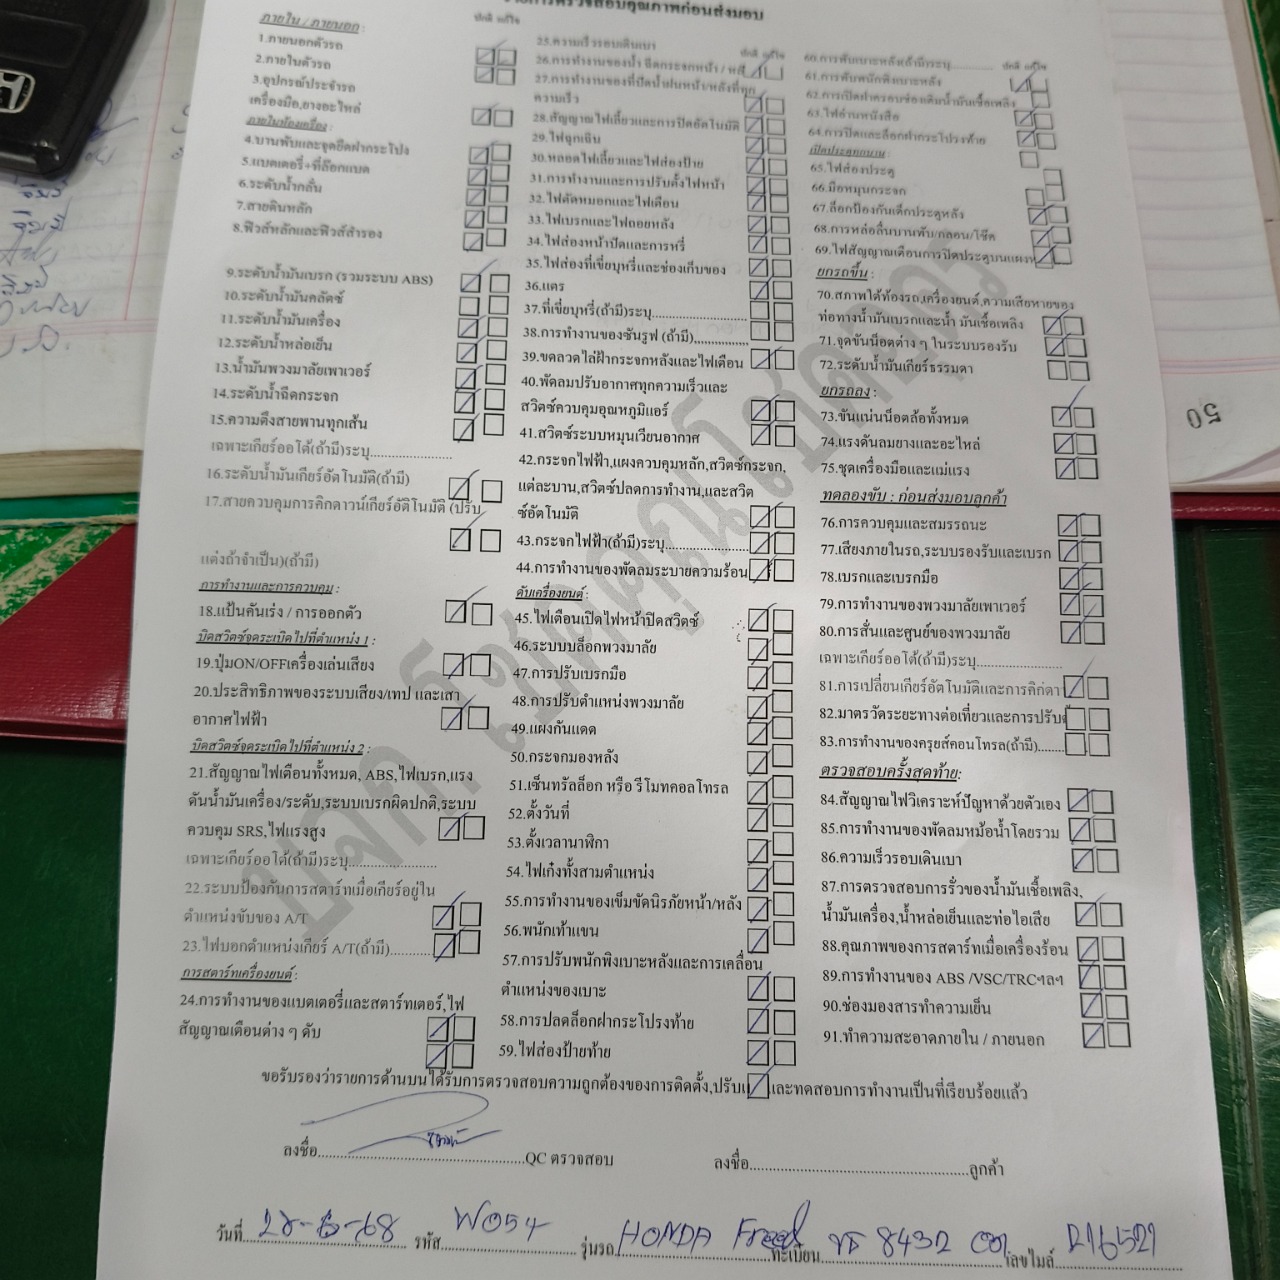 รายการตรวจสอบคุณภาพก่อนส่งมอบ
ภายใน / ภายนอก :
ปกติ แก้ไข
1.ภายนอกตัวรถ
2.ภายในตัวรถ
3.อุปกรณ์ประจำรถ
เครื่องมือ,ยางอะไหล่
ภายในห้องเครื่อง :
4.บานพับและจุดยึดฝากระโปรง
5.แบตเตอรี่+ที่ล๊อกแบต
6.ระดับน้ำกลั่น
7.สายดินหลัก
8.ฟิวส์หลักและฟิวส์สำรอง
9.ระดับน้ำมันเบรก (รวมระบบ ABS)
10.ระดับน้ำมันคลัตซ์
11.ระดับน้ำมันเครื่อง
12.ระดับน้ำหล่อเย็น
13.น้ำมันพวงมาลัยเพาเวอร์
14.ระดับน้ำฉีดกระจก
15.ความตึงสายพานทุกเส้น
เฉพาะเกียร์ออโต้(ถ้ามี)ระบุ....................
16.ระดับน้ำมันเกียร์อัตโนมัติ(ถ้ามี)
17.สายควบคุมการคิกดาวน์เกียร์อัติโนมัติ (ปรับ
แต่งถ้าจำเป็น)(ถ้ามี)
การทำงานและการควบคุม :
18.แป้นคันเร่ง / การออกตัว
บิดสวิตซ์จุดระเบิดไปที่ตำแหน่ง 1 :
19.ปุ่มON/OFFเครื่องเล่นเสียง
20.ประสิทธิภาพของระบบเสียง/เทป และเสา
อากาศไฟฟ้า
บิดสวิตซ์จุดระเบิดไปที่ตำแหน่ง 2 :
21.สัญญาณไฟเตือนทั้งหมด, ABS,ไฟเบรก,แรง
ดันน้ำมันเครื่อง/ระดับ,ระบบเบรกผิดปกติ,ระบบ
ควบคุม SRS,ไฟแรงสูง
เฉพาะเกียร์ออโต้(ถ้ามี)ระบุ.....................
22.ระบบป้องกันการสตาร์ทเมื่อเกียร์อยู่ใน
ตำแหน่งขับของ A/T
23.ไฟบอกตำแหน่งเกียร์ A/T(ถ้ามี)............
การสตาร์ทเครื่องยนต์ :
24.การทำงานของแบตเตอรี่และสตาร์ทเตอร์,ไฟ
สัญญาณเตือนต่าง ๆ ดับ
25.ความเร็วรอบเดินเบา
ปกติ แก้ไข
26.การทำงานของน้ำ ฉีดกระจกหน้า / หลัง
27.การทำงานของที่ปัดน้ำฝนหน้า/หลังที่ทุก
ความเร็ว
28.สัญญาณไฟเลี้ยวและการปิดอัตโนมัติ
29.ไฟฉุกเฉิน
30.หลอดไฟเลี้ยวและไฟส่องป้าย
31.การทำงานและการปรับตั้งไฟหน้า
32.ไฟตัดหมอกและไฟเตือน
33.ไฟเบรกและไฟถอยหลัง
34.ไฟส่องหน้าปัดและการหรี่
35.ไฟส่องที่เขี่ยบุหรี่และช่องเก็บของ
36.แตร
37.ที่เขี่ยบุหรี่(ถ้ามี)ระบุ......................
38.การทำงานของซันรูฟ (ถ้ามี)..............
39.ขดลวดไล่ฝ้ากระจกหลังและไฟเตือน
40.พัดลมปรับอากาศทุกความเร็วและ
สวิตซ์ควบคุมอุณหภูมิแอร์
41.สวิตซ์ระบบหมุนเวียนอากาศ
42.กระจกไฟฟ้า,แผงควบคุมหลัก,สวิตซ์กระจก,
แต่ละบาน,สวิตซ์ปลดการทำงาน,และสวิต
ซ์อัตโนมัติ
43.กระจกไฟฟ้า(ถ้ามี)ระบุ...................
44.การทำงานของพัดลมระบายความร้อน
ดับเครื่องยนต์ :
45.ไฟเตือนเปิดไฟหน้าปิดสวิตซ์
46.ระบบบล็อกพวงมาลัย
47.การปรับเบรกมือ
48.การปรับตำแหน่งพวงมาลัย
49.แผงกันแดด
50.กระจกมองหลัง
51.เซ็นทรัลล็อก หรือ รีโมทคอลโทรล
52.ตั้งวันที่
53.ตั้งเวลานาฬิกา
54.ไฟเก๋งทั้งสามตำแหน่ง
55.การทำงานของเข็มขัดนิรภัยหน้า/หลัง
56.พนักเท้าแขน
57.การปรับพนักพิงเบาะหลังและการเคลื่อน
ตำแหน่งของเบาะ
58.การปลดล็อกฝากระโปรงท้าย
59.ไฟส่องป้ายท้าย
60.การพับเบาะหลัง(ถ้ามี)ระบุ............
ปกติ แก้ไข
61.การพับพนักพิงเบาะหลัง
62.การเปิดฝาครอบช่องเติมน้ำมันเชื้อเพลิง
63.ไฟอ่านหนังสือ
64.การปิดและล็อกฝากระโปรงท้าย
เปิดประตูทุกบาน :
65.ไฟส่องประตู
66.มือหมุนกระจก
67.ล็อกป้องกันเด็กประตูหลัง
68.การหล่อลื่นบานพับ/กลอน/โช๊ค
69.ไฟสัญญาณเตือนการปิดประตูบนแผงห
ยกรถขึ้น :
70.สภาพใต้ท้องรถ,เครื่องยนต์,ความเสียหายของ
ท่อทางน้ำมันเบรกและน้ำ มันเชื้อเพลิง
71.จุดขันน็อตต่าง ๆ ในระบบรองรับ
72.ระดับน้ำมันเกียร์ธรรมดา
ยกรถลง :
73.ขันแน่นน็อตล้อทั้งหมด
74.แรงดันลมยางและอะไหล่
75.ชุดเครื่องมือและแม่แรง
ทดลองขับ : ก่อนส่งมอบลูกค้า
76.การควบคุมและสมรรถนะ
77.เสียงภายในรถ,ระบบรองรับและเบรก
78.เบรกและเบรกมือ
79.การทำงานของพวงมาลัยเพาเวอร์
80.การสั่นและศูนย์ของพวงมาลัย
เฉพาะเกียร์ออโต้(ถ้ามี)ระบุ....................
81.การเปลี่ยนเกียร์อัตโนมัติและการคิกดา
82.มาตรวัดระยะทางต่อเที่ยวและการปรับตั
83.การทำงานของครุยส์คอนโทรล(ถ้ามี).......
ตรวจสอบครั้งสุดท้าย:
84.สัญญาณไฟวิเคราะห์ปัญหาด้วยตัวเอง
85.การทำงานของพัดลมหม้อน้ำโดยรวม
86.ความเร็วรอบเดินเบา
87.การตรวจสอบการรั่วของน้ำมันเชื้อเพลิง,
น้ำมันเครื่อง,น้ำหล่อเย็นและท่อไอเสีย
88.คุณภาพของการสตาร์ทเมื่อเครื่องร้อน
89.การทำงานของ ABS /VSC/TRCฯลฯ
90.ช่องมองสารทำความเย็น
91.ทำความสะอาดภายใน / ภายนอก
ขอรับรองว่ารายการด้านบนได้รับการตรวจสอบความถูกต้องของการติดตั้ง,ปรับแ และทดสอบการทำงานเป็นที่เรียบร้อยแล้ว
ลงชื่อ..................QC ตรวจสอบ
ลงชื่อ..................ลูกค้า
วันที่ 28-6-68 รหัส W054 รุ่นรถ HONDA Freed ทะเบียน 8432 เลขไมล์ 216521
50